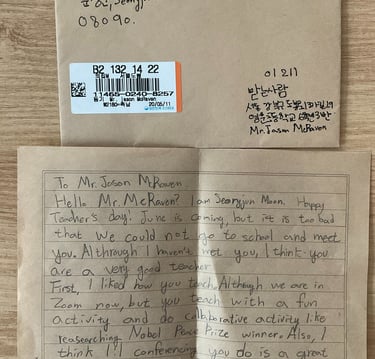 08090.
B2 132 14 22
11465-0240-8257
Mr. Jason McRaven
20/05/11
01211
받는사람
서울 강북구
영훈초등학교
Mr. Jason McRaven
To Mr. Jason McRaven
Hello Mr. McRaven? I am Seongjun Moon. Happy
Teacher's day! June is coming, but ist is too bad
that we could not go to school and meet
you. Althrough I haven't met you, I think you
are a very good teacher
First, I liked how you teach. Although we are in
Zoom now, but you teach with a fun
activity and do collaborative activity like
reasearching Nobel Peace Prize winner. Also, I
think 1:1 conferencing you do is a great